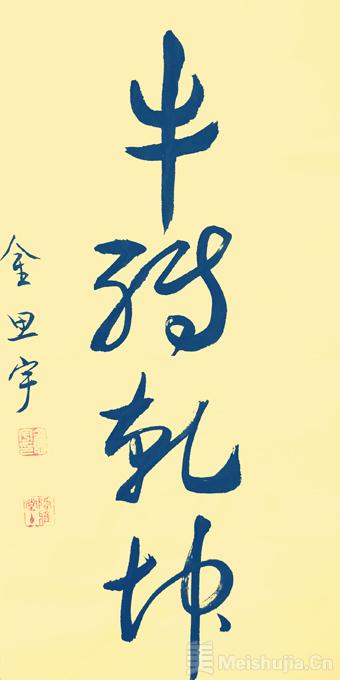 牛转乾坤
金思宇
Meishujia.Cn